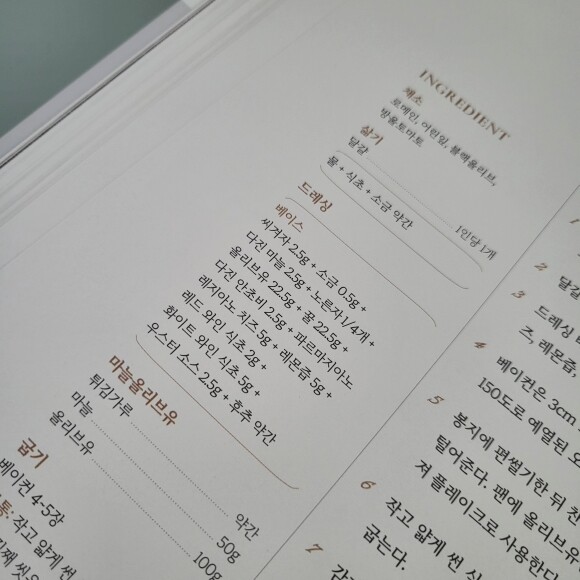 INGREDIENT
채소
로메인, 어린잎, 블랙올리브,
방울토마토
삶기
달걀 1인당 1개
물 + 식초 + 소금 약간
드레싱
베이스
씨겨자 2.5g + 소금 0.5g +
다진 마늘 2.5g + 노른자 1/4개 +
올리브유 22.5g + 꿀 22.5g +
다진 안초비 2.5g + 파르마지아노
레지아노 치즈 5g + 레몬즙 5g +
레드 와인 식초 2g +
화이트 와인 식초 5g +
우스터 소스 2.5g + 후추 약간
마늘올리브유
튀김가루 약간
마늘 50g
올리브유 100g
굽기
베이컨 4-5장
통: 작고 얇게 썬
2 달걀
3 드레싱
즈, 레몬즙,
4 베이컨은 3cm
150도로 예열된 오
5 봉지에 편썰기한 뒤
털어준다. 팬에 올리브유
져 플레이크로 사용한다
6 작고 얇게 썬
굽는다.
7